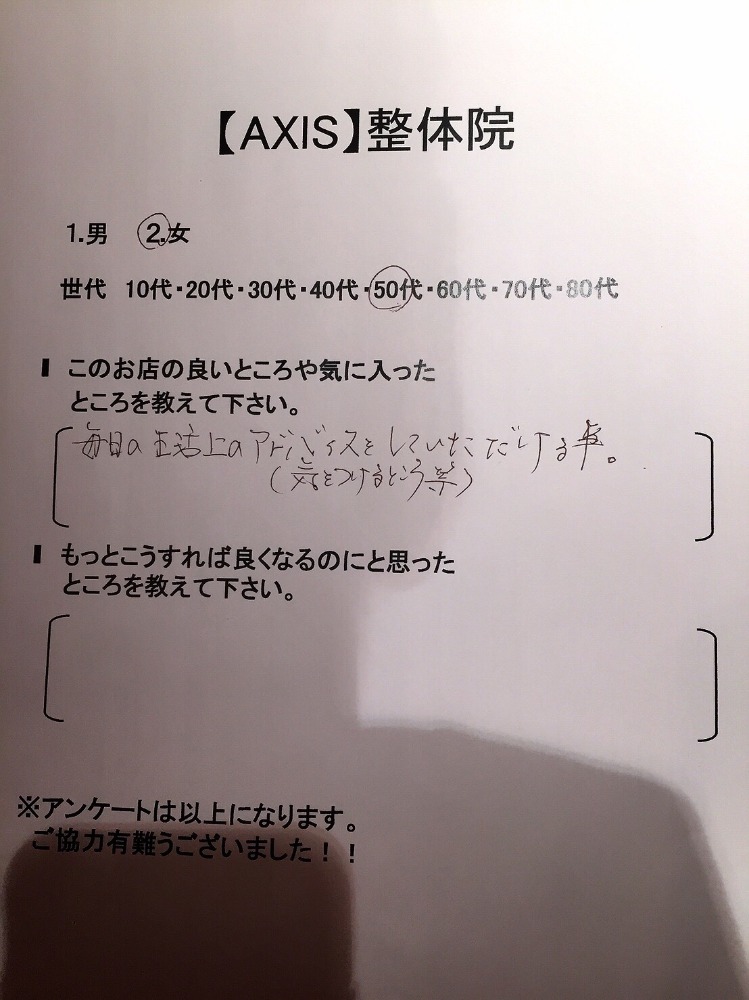 【AXIS】整体院
1.男 2.女
世代 10代・20代・30代・40代・50代・60代・70代・80代
このお店の良いところや気に入った
ところを教えて下さい。
毎日の生活上のアドバイスをしていただける事。
(気をつけるところ等)
もっとこうすれば良くなるのにと思った
ところを教えて下さい。
※アンケートは以上になります。
ご協力有難うございました！！